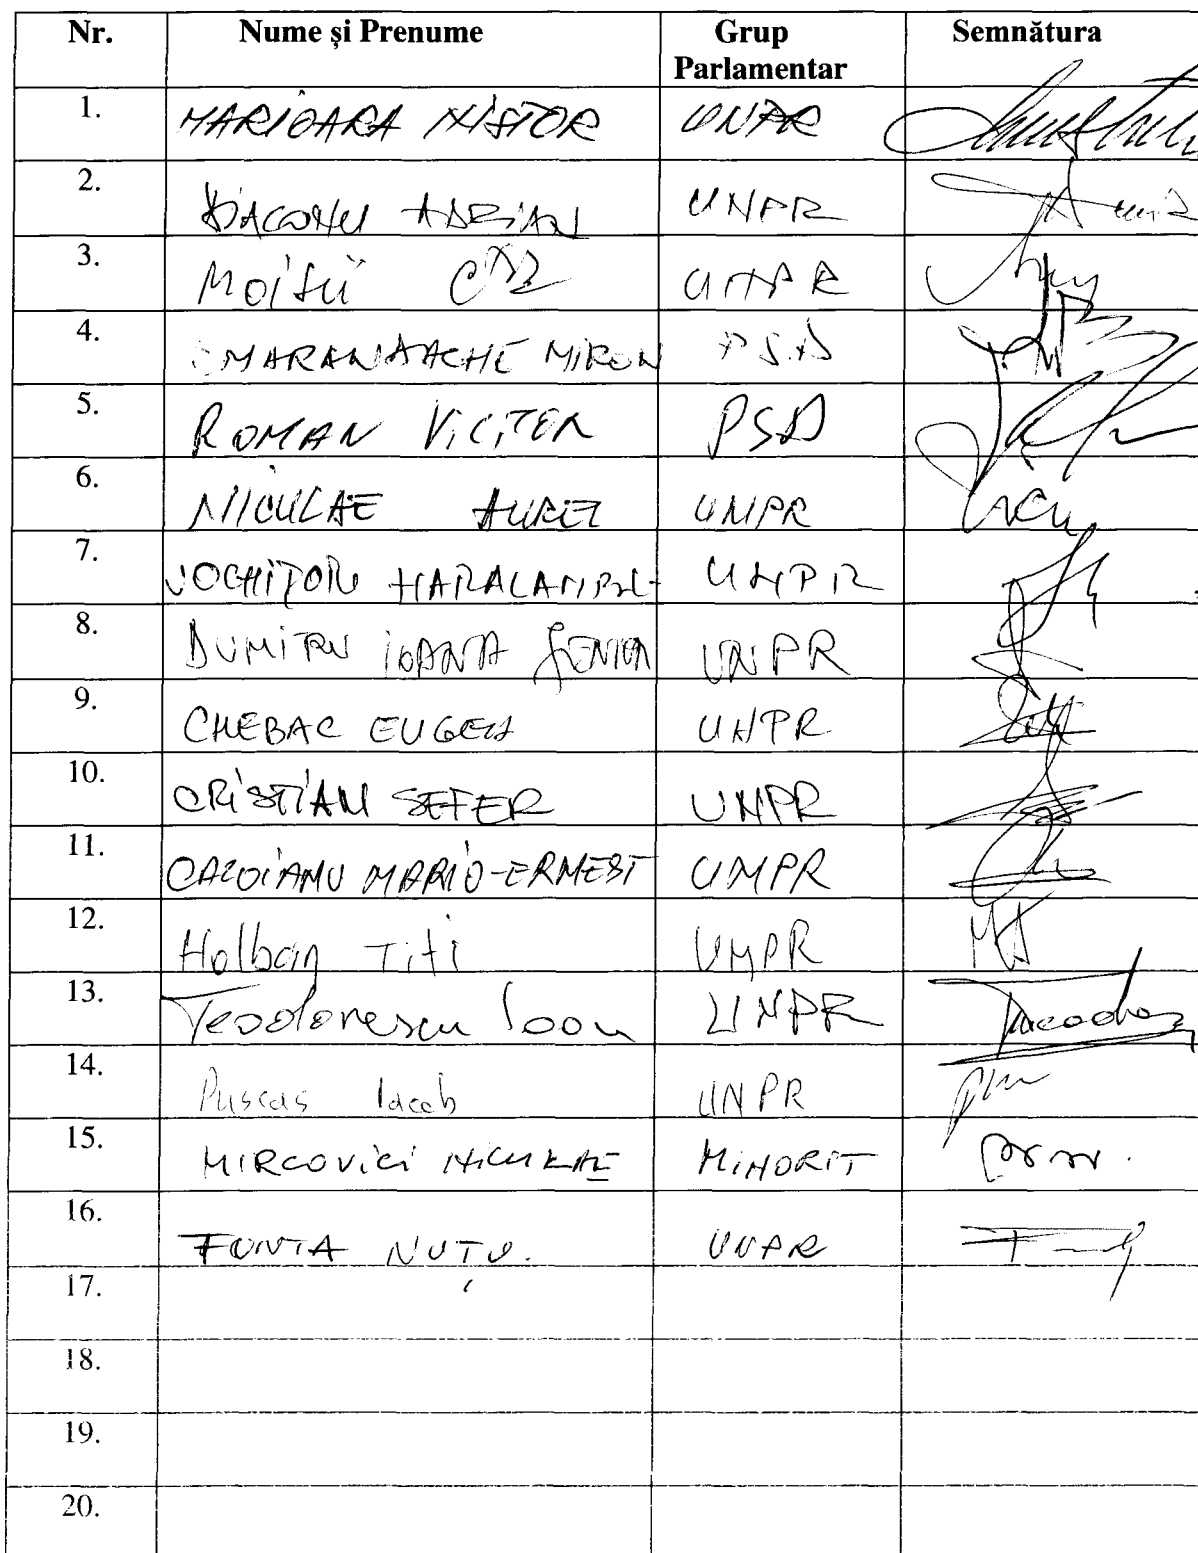 Nr. Nume și Prenume Grup Parlamentar Semnătura
1. MARIOARA NISTOR UNPR
2. DIACONU ADRIAN UNPR
3. Moisii UNPR
4. SMARANDACHE MIRON PSD
5. ROMAN VICTOR PSD
6. NICULAE AUREL UNPR
7. VOCHIȚOIU HARALAMBIE UNPR
8. DUMITRU IOANA JENICA UNPR
9. CHEBAC EUGEN UNPR
10. CRISTIAN SEFER UNPR
11. CAZOIANU MARIO-ERNEST UNPR
12. Holban Titi UNPR
13. Teodorescu Ioan UNPR
14. Puscas Iacob UNPR
15. MIRCOVICI NICULAE MINORIT
16. FONTA NUȚU. UNPR
17.
18.
19.
20.